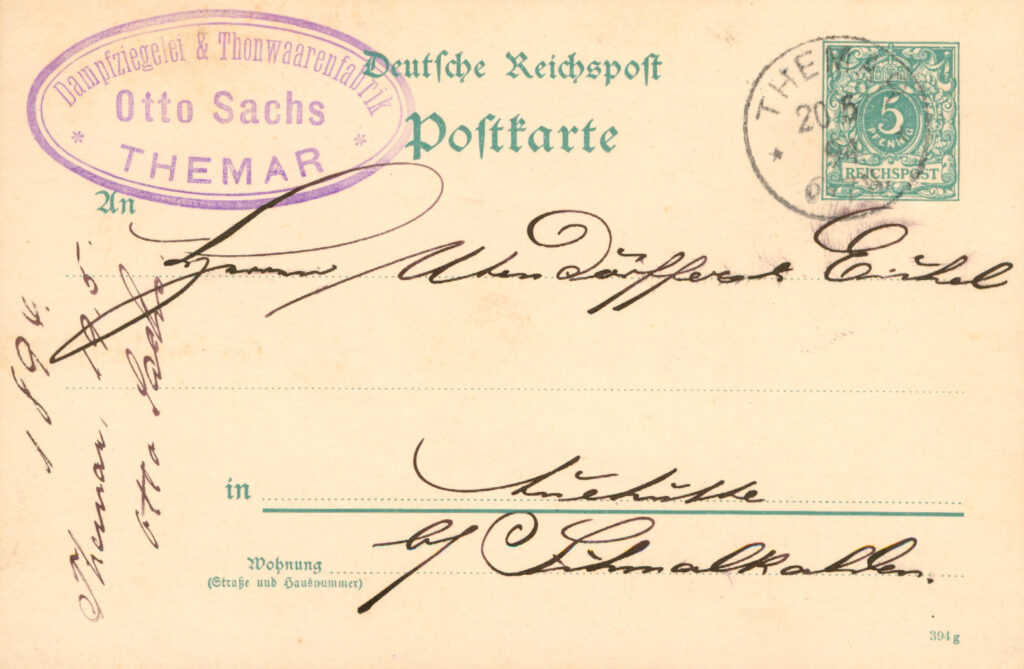 Dampfziegelei & Thonwaarenfabrik
Otto Sachs
* THEMAR *
Deutsche Reichspost
Postkarte
THEMAR
20 5
94
5
PFENNIG
REICHSPOST
An
Herrn Utendörffer &
in
Auehütte
b/ Schmalkalden.
Wohnung
(Straße und Hausnummer)
394 g
Themar, 19 5. 1894.
Otto Sachs